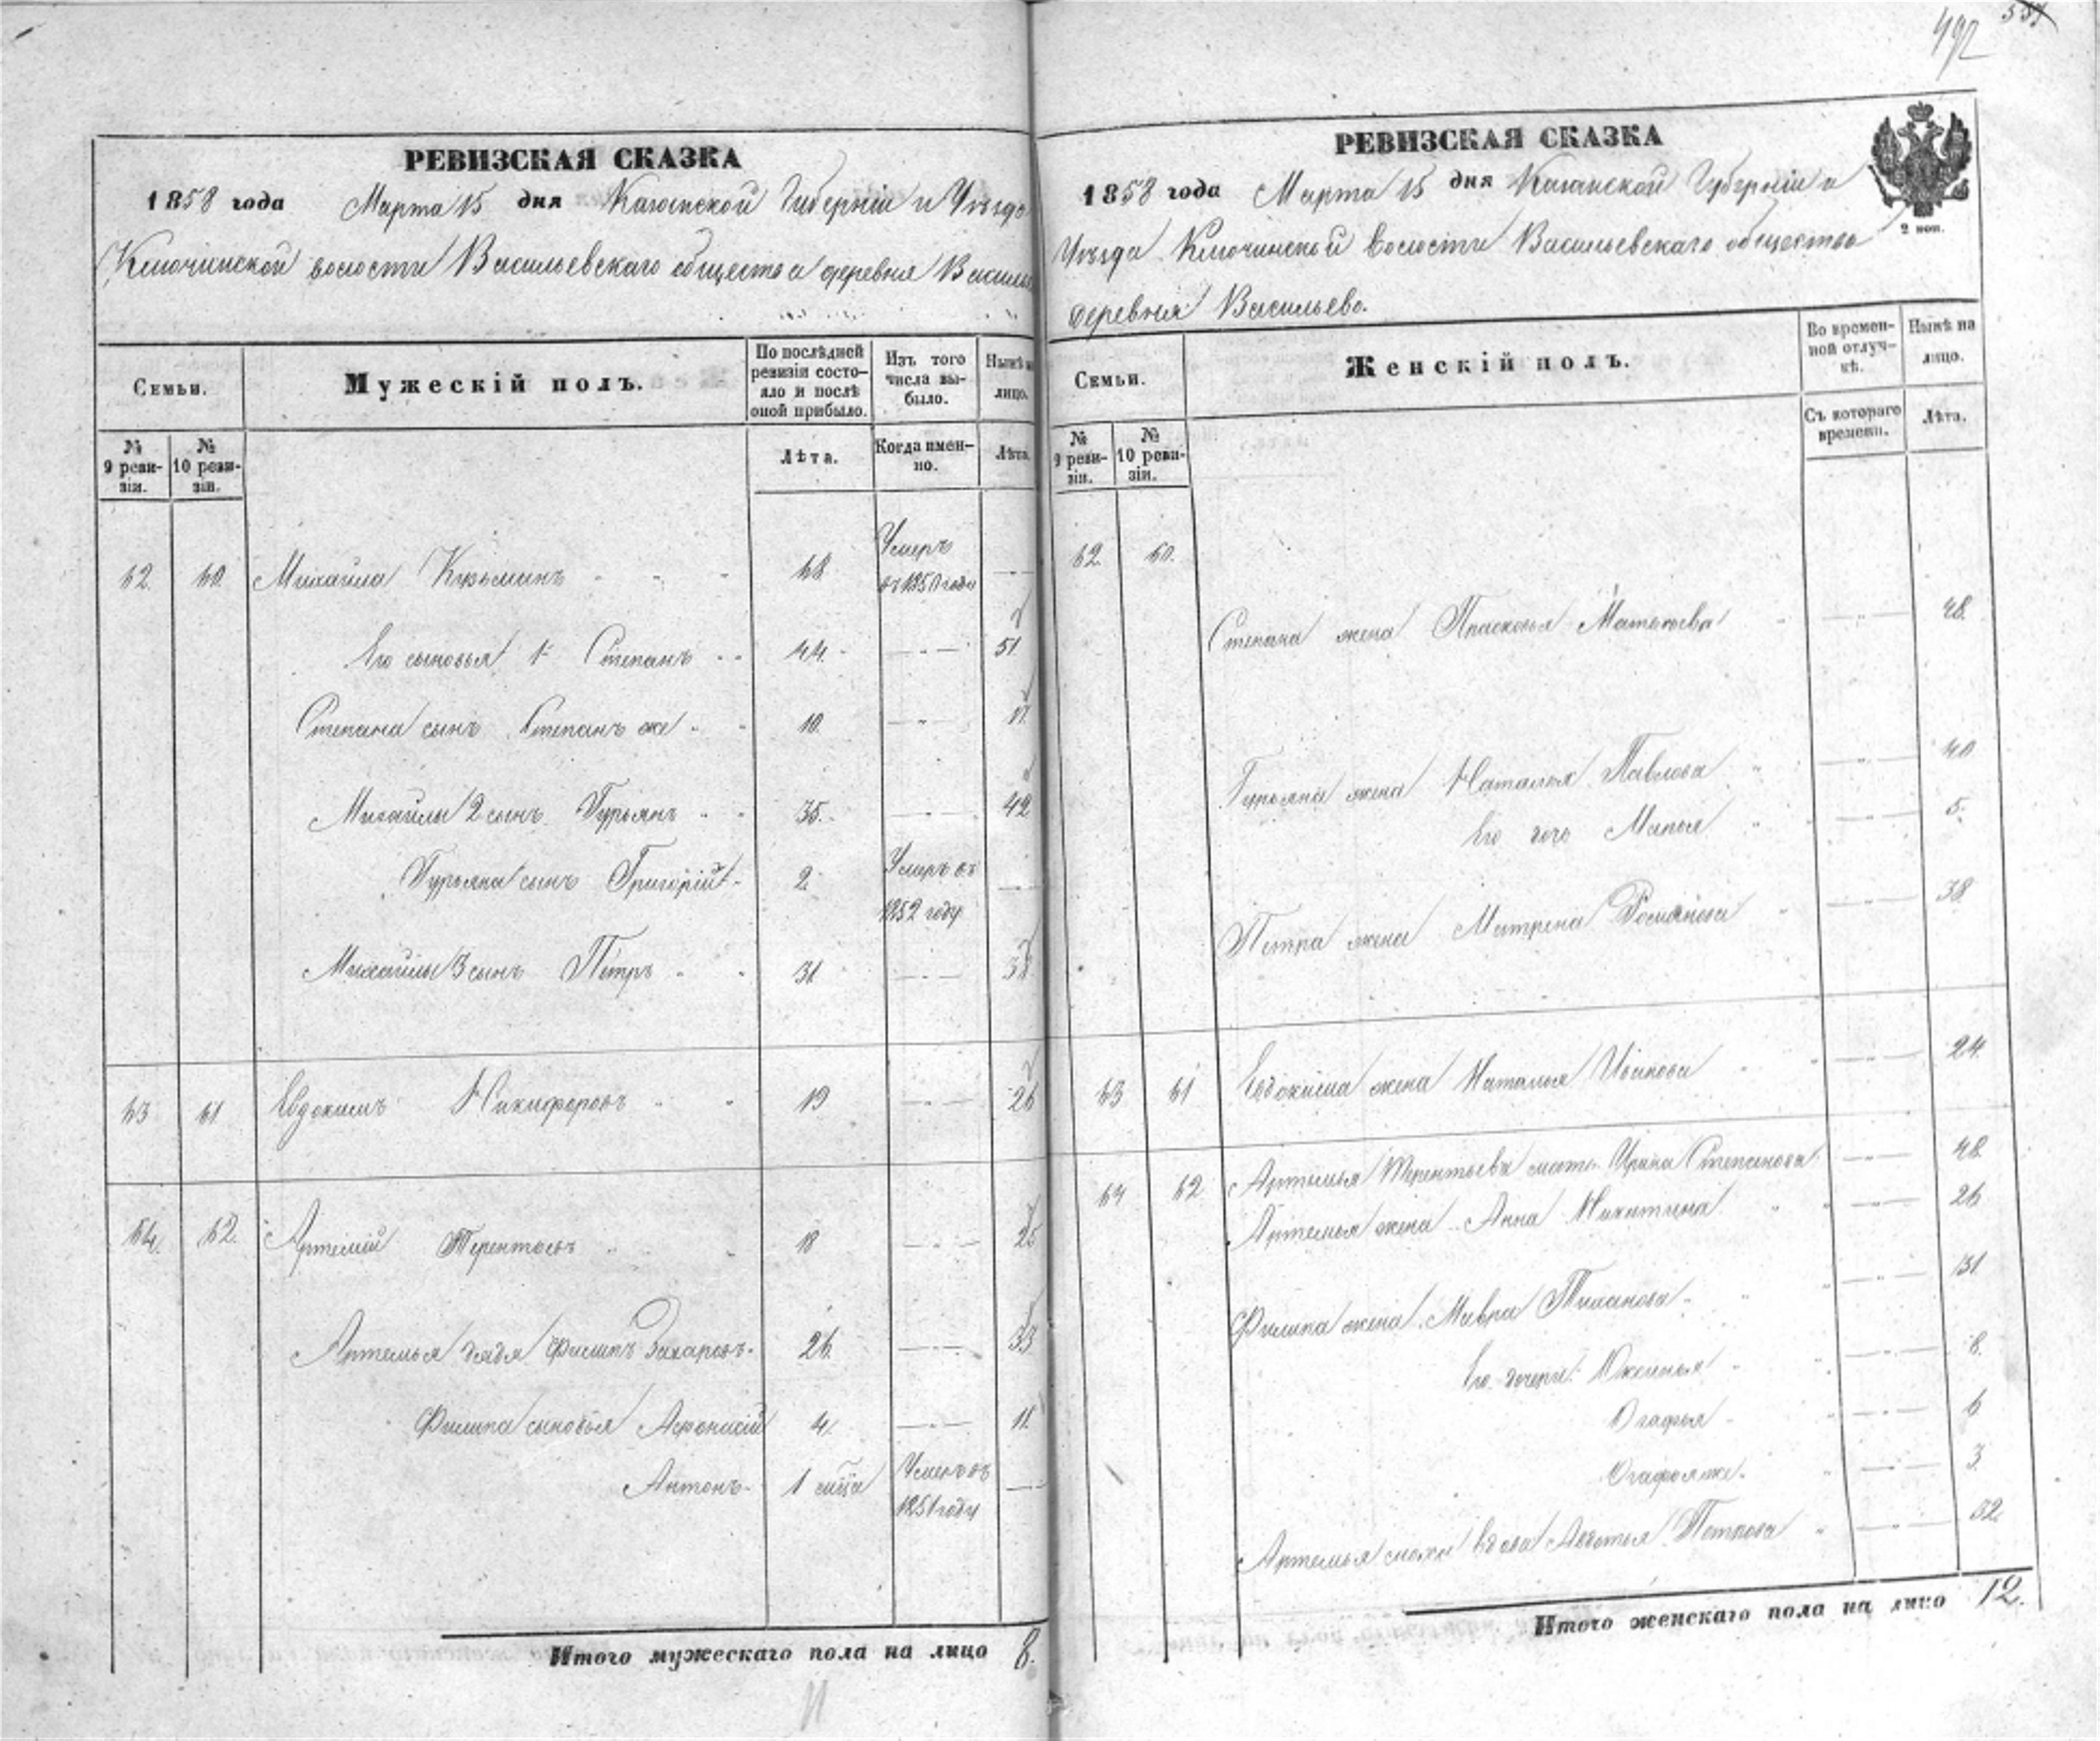 492
РЕВИЗСКАЯ СКАЗКА
1858 года Марта 15 дня Казанской Губерніи и Уѣзда
Ключинской волости Васильевскаго общества деревня
Семьи.
Мужескій полъ.
По послѣдней ревизіи состояло и послѣ оной прибыло.
Изъ того числа выбыло.
Нынѣ на лицо.
№ 9 ревизіи.
№ 10 ревизіи.
Лѣта.
Когда именно.
Лѣта.
62. 60. Михайла Кузьминъ 68 Умеръ въ 1850 году
Его сыновья 1й Степанъ 44. 51
Степана сынъ Степанъ же 10. 17.
Михайлы 2 сынъ Гурьянъ 35. 42
Гурьяна сынъ Григорій 2. Умеръ въ 1852 году
Михайлы 3 сынъ Петръ 31 38
63 61 Евдокимъ Никифоровъ 19 26
64. 62. Артемій Терентьевъ 18 25
Артемья дядя Филипъ Захаровъ 26. 33
Филипа сыновья Афонасій 4 11.
Антонъ 1 Умеръ въ 1851 году
Итого мужескаго пола на лицо 8.
РЕВИЗСКАЯ СКАЗКА
1858 года Марта 15 дня Казанской Губерніи и
Уѣзда Ключинской волости Васильевскаго общества
2 коп.
деревня Васильево.
Семьи.
Женскій полъ.
Во временной отлучкѣ.
Нынѣ на лицо.
№ 9 ревизіи.
№ 10 ревизіи.
Съ котораго времени.
Лѣта.
62. 60.
Степана жена Прасковья Матвѣева 48.
Гурьяна жена Наталья Павлова 40
Его дочь Марья 5.
Петра жена Матрена Романова 38.
63 61 Евдокима жена Наталья Иванова 24.
64 62 Артемья Терентьева мать Ирина Степанова 48.
Артемья жена Анна Никитина 26
Филипа жена Мавра 31.
Его дочери: 8.
Огафья 6
Огафья же 3.
Артемья вдова Авдотья Петрова
Итого женскаго пола на лицо 12.